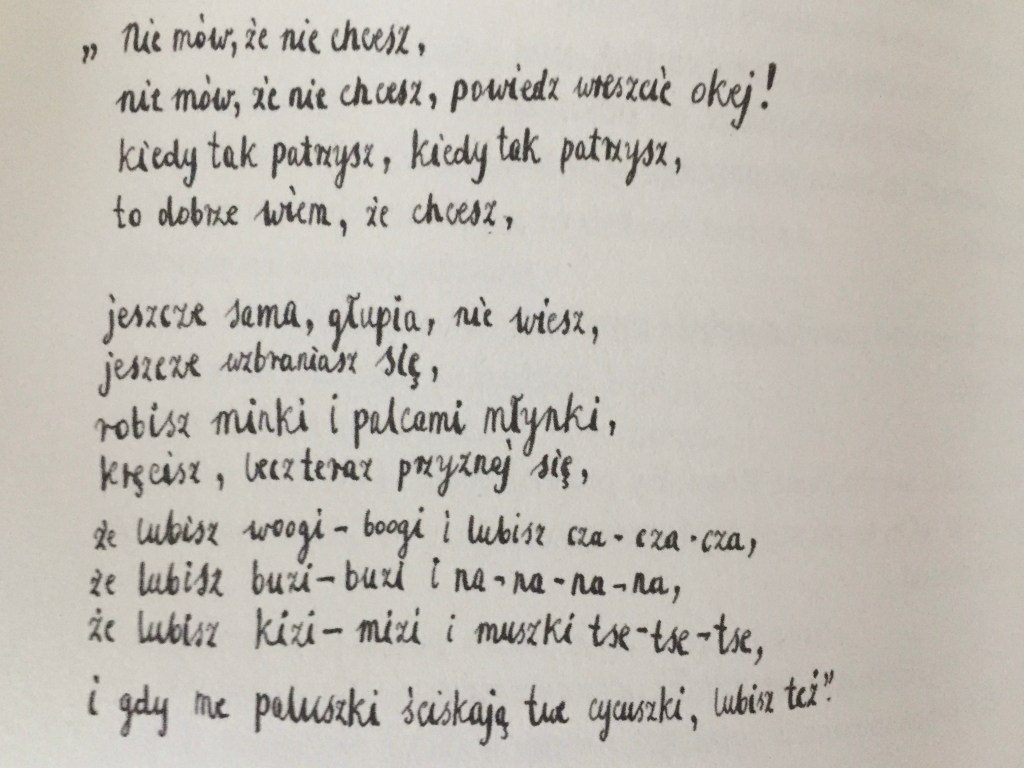 „Nie mów, że nie chcesz,
nie mów, że nie chcesz, powiedz wreszcie okej!
kiedy tak patrzysz, kiedy tak patrzysz,
to dobrze wiem, że chcesz,
jeszcze sama, głupia, nie wiesz,
jeszcze wzbraniasz się,
robisz minki i palcami młynki,
kręcisz, lecz teraz przyznaj się,
że lubisz woogi-boogi i lubisz cza-cza-cza,
że lubisz buzi-buzi i na-na-na-na,
że lubisz kizi-mizi i muszki tse-tse-tse,
i gdy me paluszki ściskają twe cycuszki, lubisz też”.